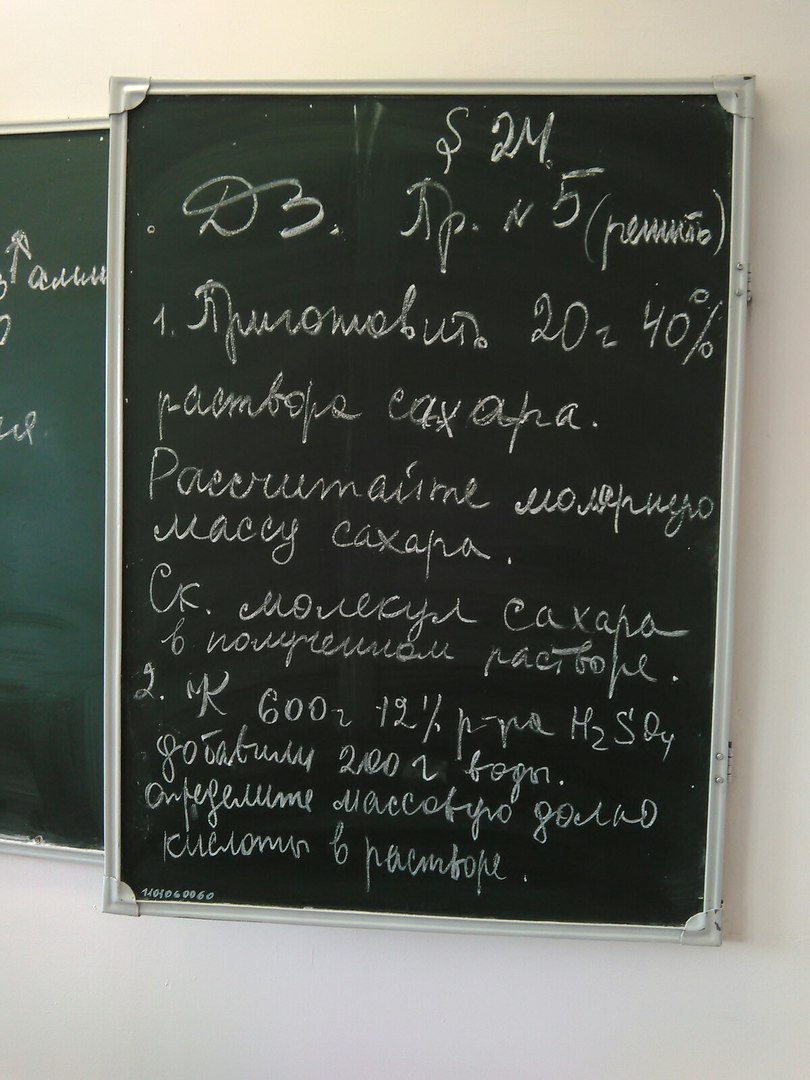 § 24.
ДЗ. Пр. № 5 (решить)
1. Приготовить 20 г 40%
раствора сахара.
Рассчитайте молярную
массу сахара.
Ск. молекул сахара
в полученном растворе.
2. К 600 г 12% р-ра H₂SO₄
добавили 200 г воды.
определите массовую долю
кислоты в растворе.